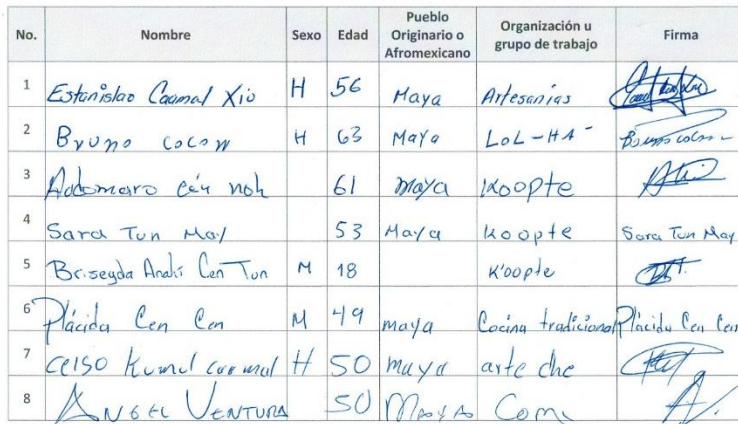 No. Nombre Sexo Edad Pueblo Originario o Afromexicano Organización u grupo de trabajo Firma
1 Estanislao Caamal Xiu H 56 Maya Artesanías
2 Bruno Cocom H 63 Maya LOL-HA
3 Adomaro cén noh 61 Maya Koopte
4 Sara Tun May 53 Maya Koopte Sara Tun May
5 Briseyda Anahí Cen Tun M 18 K'oopte
6 Plácida Cen Cen M 49 maya Cocina tradicional Plácida Cen Cen
7 H 50 maya arte che
8 ANGEL VENTURA 50 MAYA